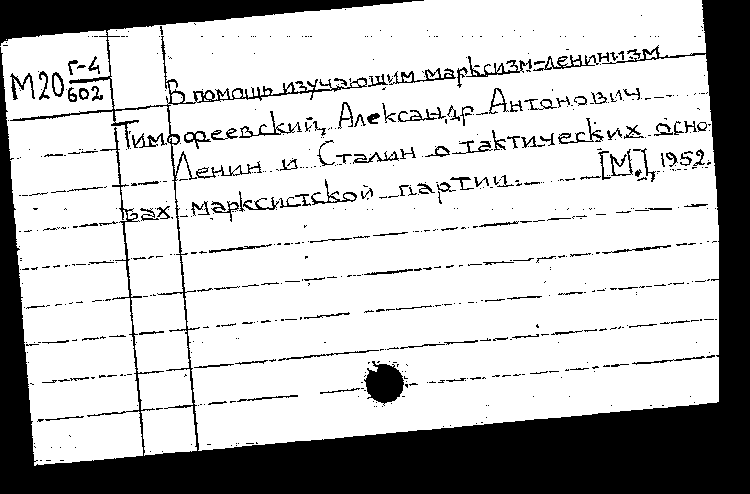 М20 Г-4
602
В помощь изучающим марксизм-ленинизм
Тимофеевский, Александр Антонович
Ленин и Сталин о тактических осно-
вах марксистской партии. [М.], 1952.